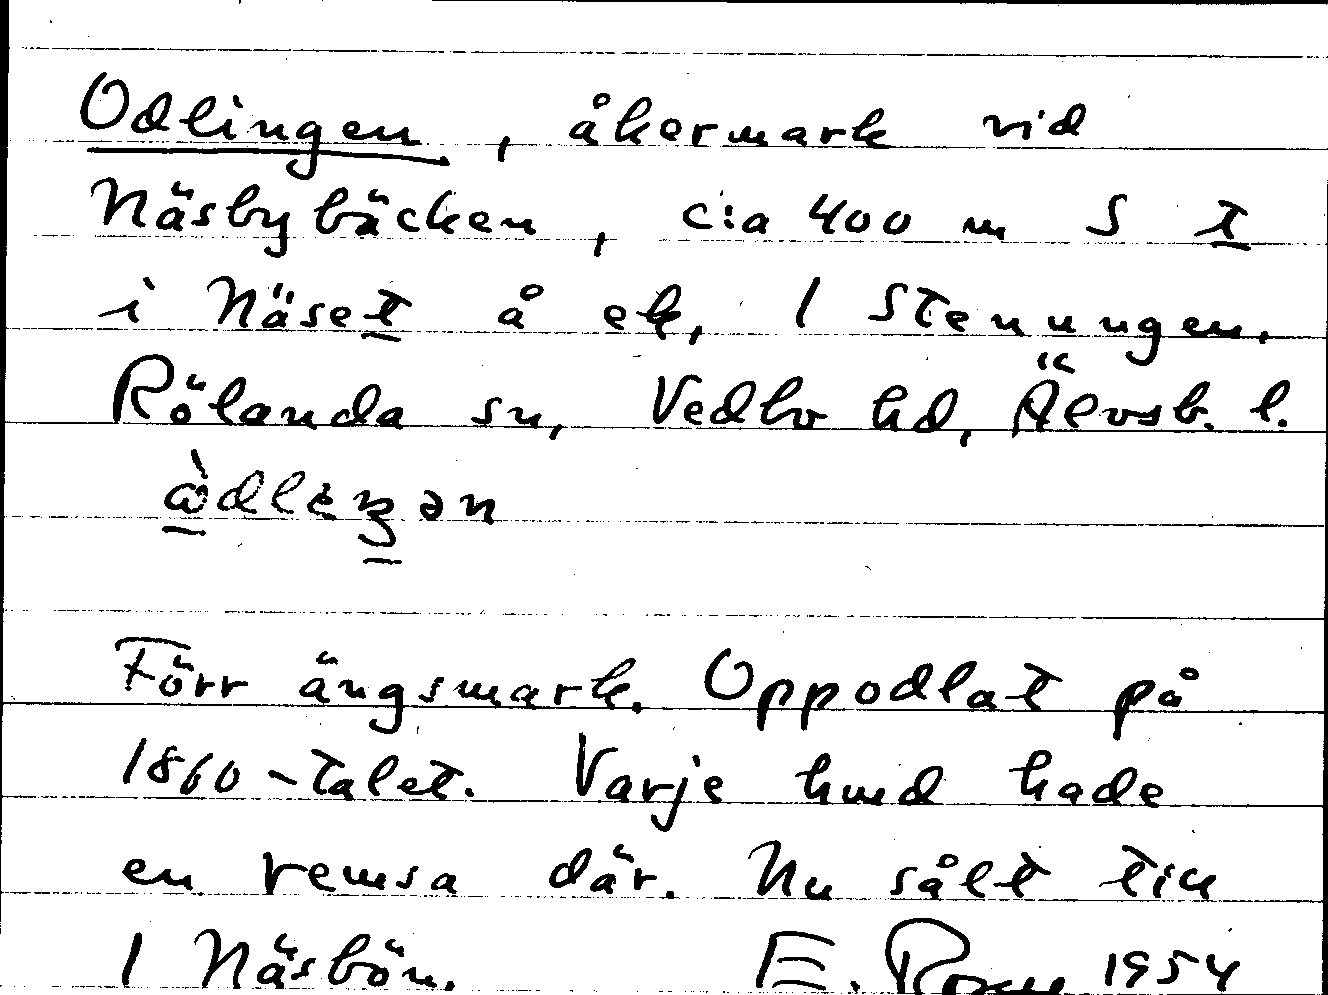 Odlingen, åkermark vid
Näsbybäcken, c:a 400 m S t
i Näset å ek, 1 Stenungen,
Rölanda sn, Vedbo hd, Älvsb. l.
Förr ängsmark. Oppodlat på
1860-talet. Varje hmd hade
en remsa där. Nu sålt till
1 Näsbön. E. 1954